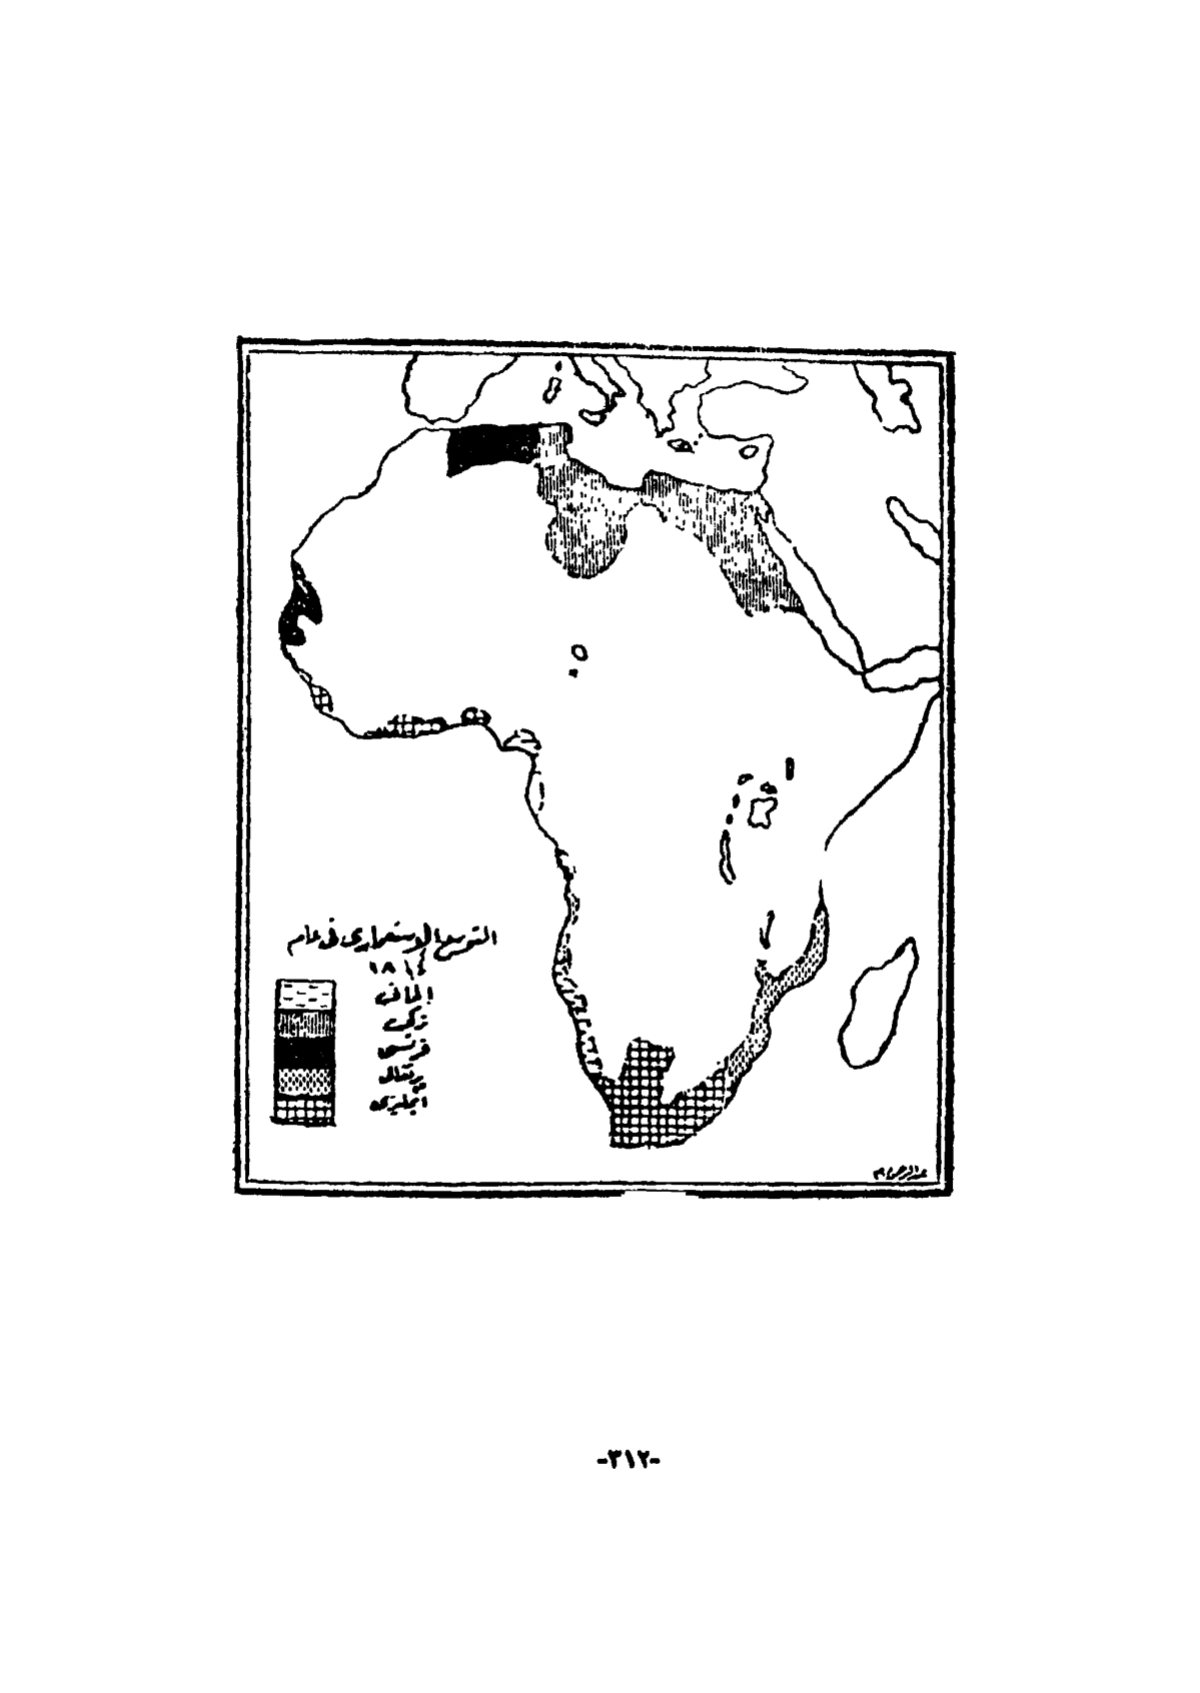 التوسع الاستعماري في عام
١٨١٤
ألماني
تركي
فرنسي
برتغالي
انجليزي
-٣١٢-